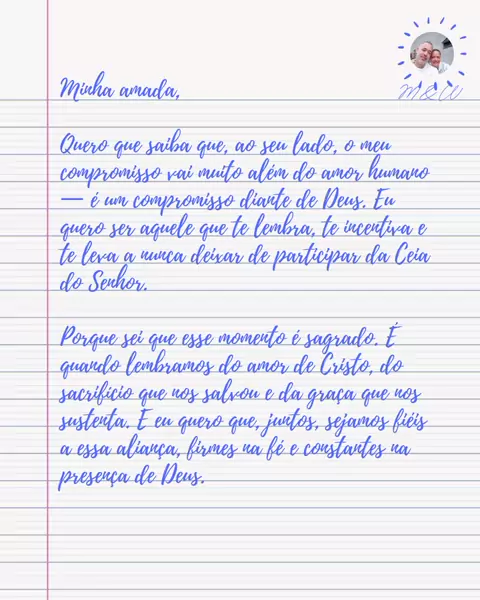 M & W
Minha amada,
Quero que saiba que, ao seu lado, o meu
compromisso vai muito além do amor humano
— é um compromisso diante de Deus. Eu
quero ser aquele que te lembra, te incentiva e
te leva a nunca deixar de participar da Ceia
do Senhor.
Porque sei que esse momento é sagrado. É
quando lembramos do amor de Cristo, do
sacrifício que nos salvou e da graça que nos
sustenta. E eu quero que, juntos, sejamos fiéis
a essa aliança, firmes na fé e constantes na
presença de Deus.